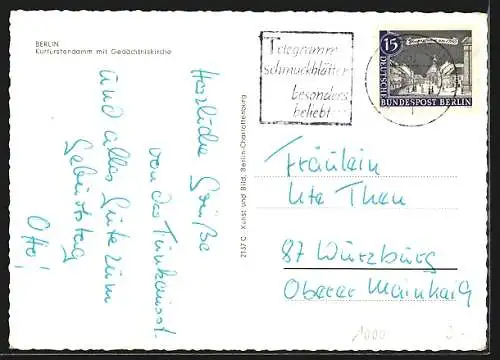 BERLIN
Kurfürstendamm mit Gedächtniskirche
Herzliche Grüße
von der Funkausst.
und alles Gute zum
Geburtstag
Otto!
2137 C Kunst und Bild, Berlin-Charlottenburg
Telegramme
Schmuckblätter
besonders
beliebt
15
DEUTSCHE
BUNDESPOST BERLIN
Fräulein
Ute Then
87 Würzburg
Oberer Mainkaig
1000